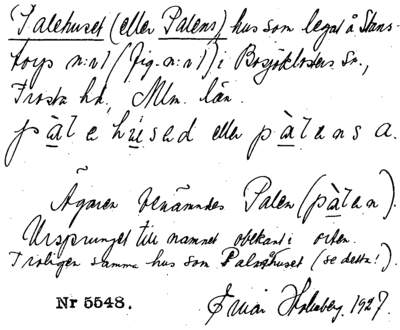 Palehuset (eller Palens) hus som legat å Stans-
torps n:r1 (fig. n:r1) i Bosjöklosters sn.,
Frosta hd, Mlm. län.
pàlehused eller pàlansa.
Ägaren benämndes Palen (pàlan).
Ursprunget till namnet obekant i orten.
Troligen samma hus som Palahuset (se detta!).
Nr 5548. Holmberg. 1927.